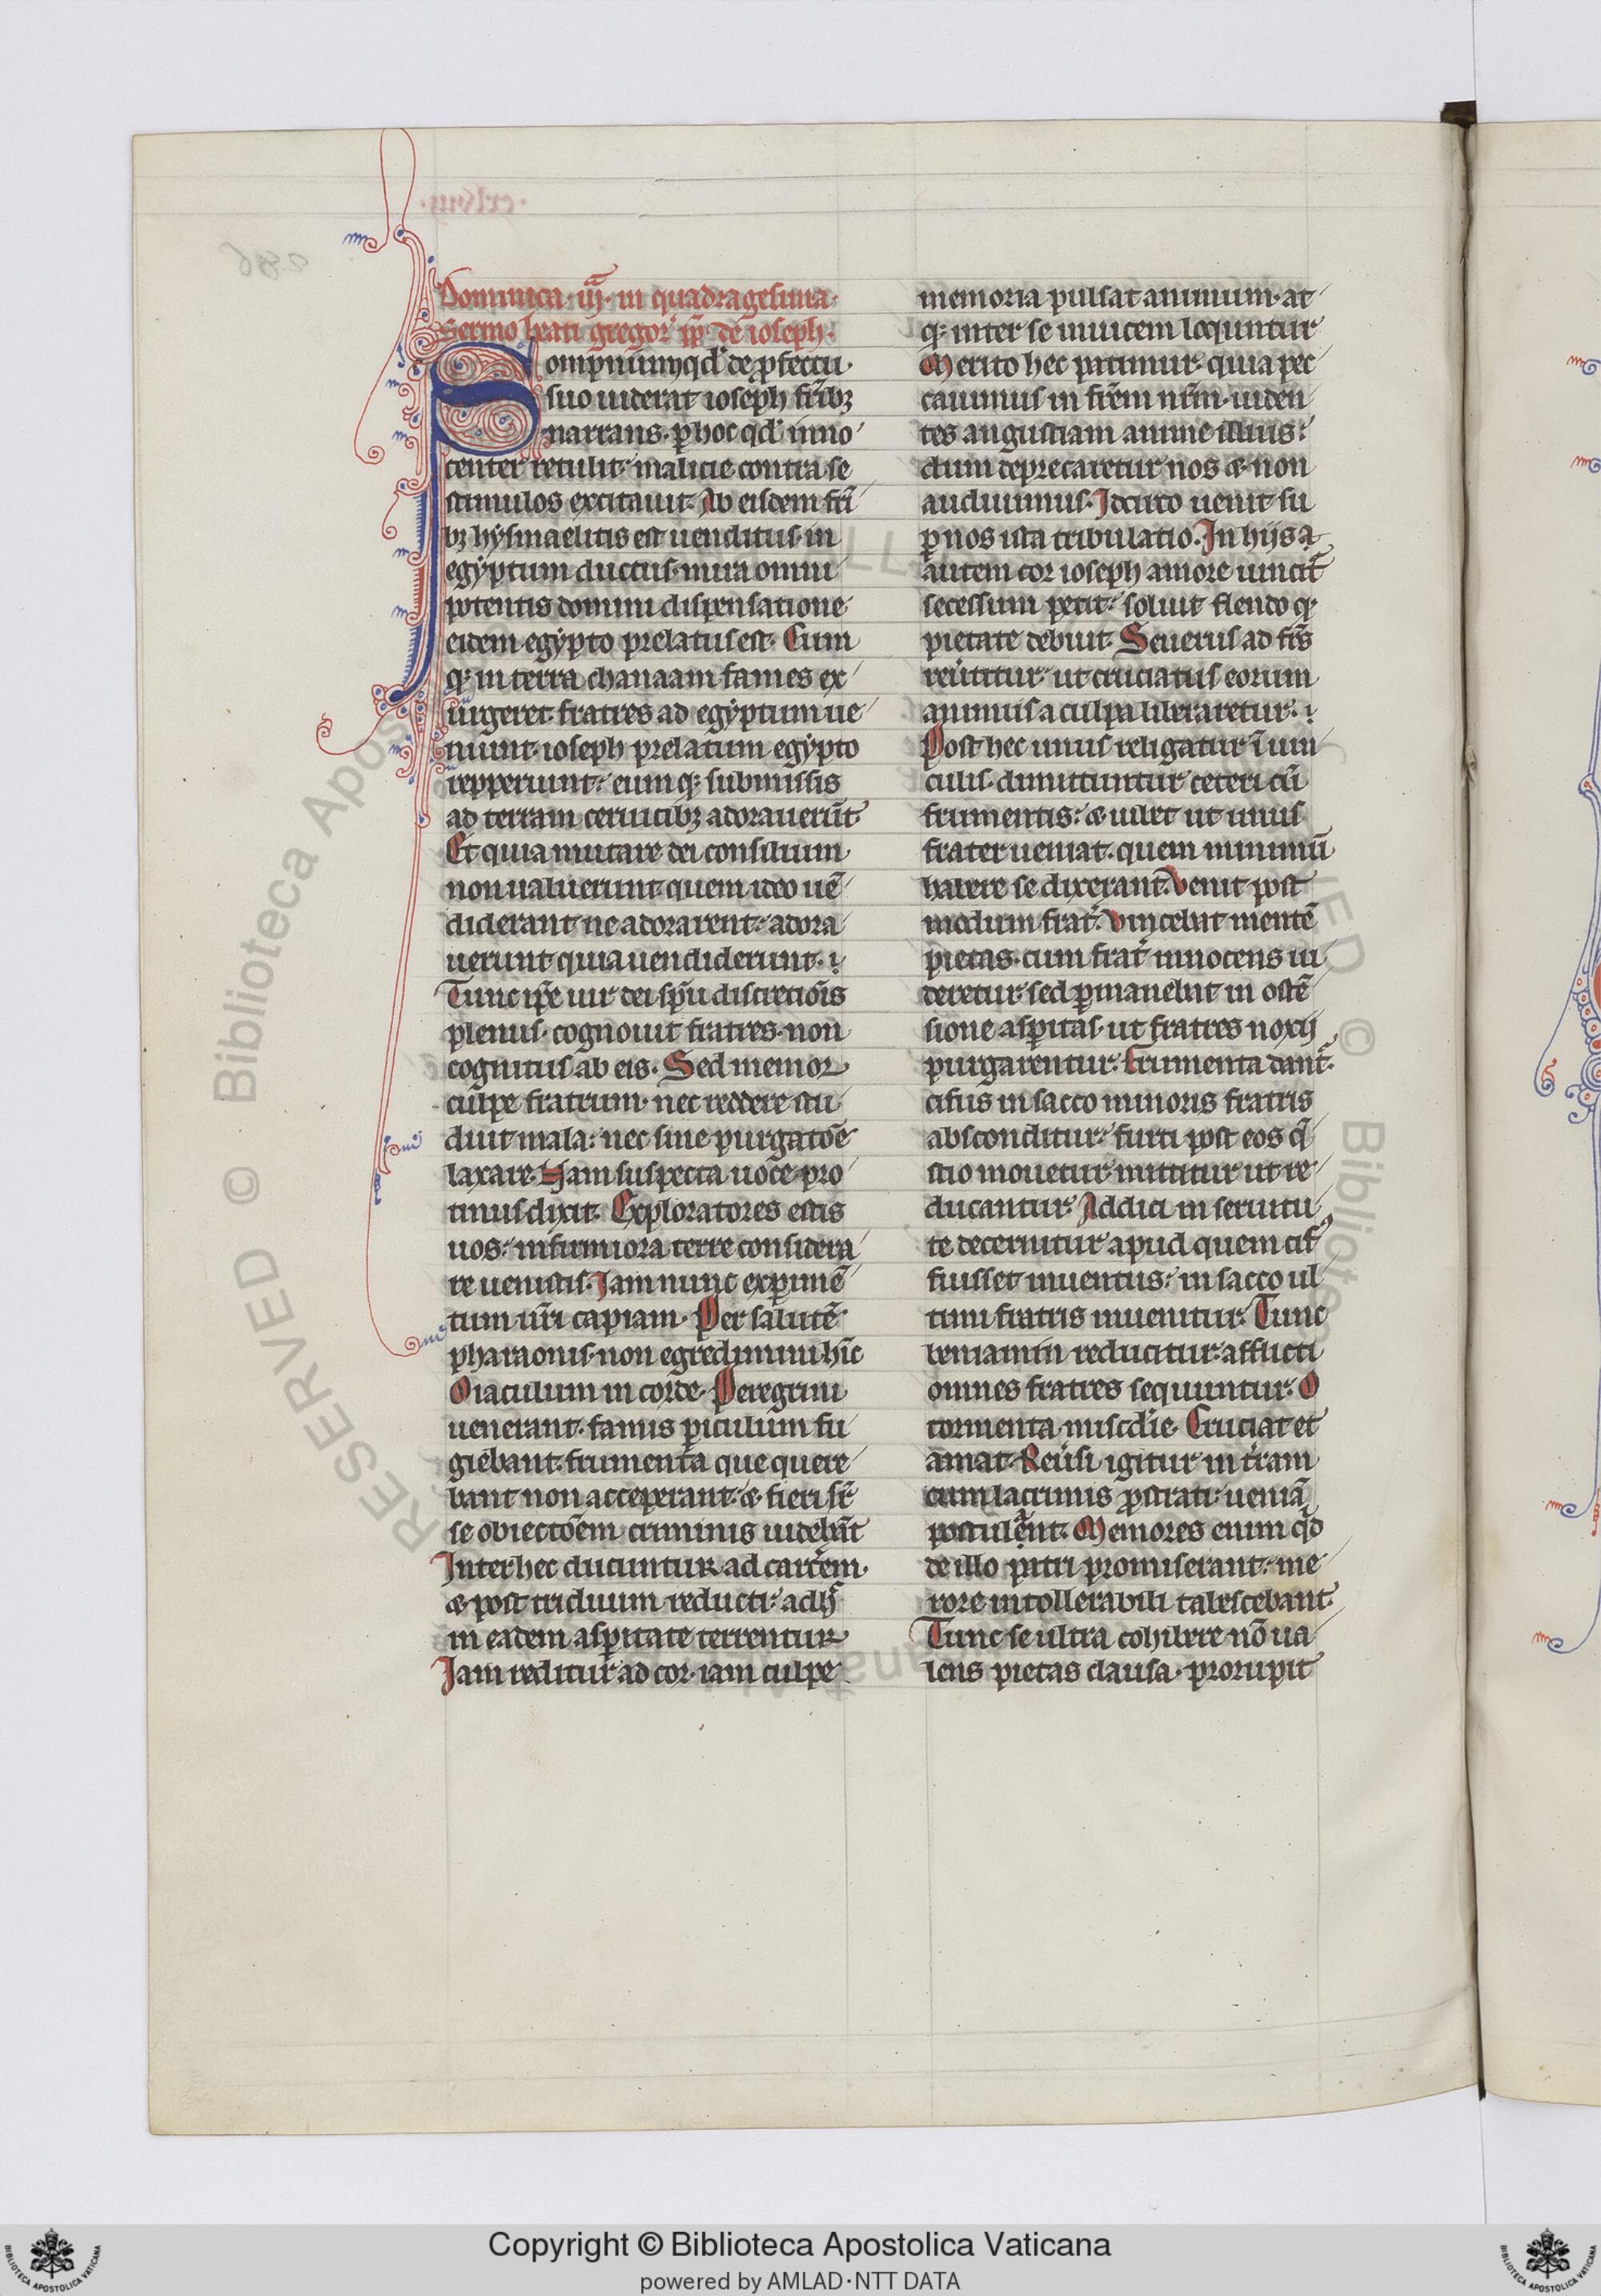 Dominica · iija · in quadragesima ·
Sermo beati gregor' pp̄ · de ioseph ·
Sompnium qd' de ꝓfectu ·
suo uiderat ioseph fr̄ibꝫ
narrans · ꝑ hoc qd' inno
center retulit · malicie contra se
stimulos excitauit · Ab eisdem fr̄i
bꝫ hẏsmaelitis est uenditus · in
egẏptum ductus · mira omni
potentis domini dispensatione
eidem egẏpto prelatus est · Cum
qꝫ in terra chanaam fames ex
urgeret · fratres ad egẏptum ue
niunt · ioseph prelatum egẏpto
repperiunt · eumqꝫ submissis
ad terram ceruicibꝫ adorauerūt
Et quia mutare dei consilium
non ualuerunt · quem ideo uē
diderant ne adorarent · adora
uerunt quia uendiderunt ·
Tunc ip̄e uir dei sp̄u discretiōis
plenus · cognouit fratres · non
cognitus ab eis · Sed memor
culpe fratrum · nec reddere stu
duit mala : nec sine purgatōe
laxare · Nam suspecta uoce pro
tinus dixit · Exploratores estis
uos : infirmiora terre considera
re uenistis · Iam nunc exꝑimē
tum ur̄i capiam · Per salutē
pharaonis · non egredimini hīc
O iaculum in corde · Peregrini
uenerant · famis ꝑiculum fu
giebant · frumenta que quere
bant non acceperant · ⁊ fieri sr̄
se obiectōem criminis uidebāt
Inter hec ducuntur ad carc̄em ·
⁊ post triduum reducti : adhᷓ
in eadem asꝑitate terrentur
Iam reditur ad cor · iam culpe
memoria pulsat animum · at
qꝫ inter se inuicem loquntur
Merito hec patimur · quia pec
cauimus in fr̄em nr̄m · uiden
tes angustiam anime illius :
dum deprecaretur nos ⁊ non
audiuimus · Idcirco uenit su
ꝑ nos ista tribulatio · In hijs
autem cor ioseph amore uincit᷑
secessum petit · soluit flendo qꝫ
pietate debuit · Seuerus ad fr̄s
reu'titur · ut cruciatus eorum
animus a culpa liberaretur ·
Post hec unus religatur ī uin
culis · dimittuntur ceteri cū
frumentis : ⁊ iubet ut unus
frater ueniat · quem minimū
habere se dixerant · Venit post
modum frat' · Vincebat mentē
pietas · cum frat' innocens ui
deretur · sed ꝑmanebat in ostē
sione asꝑitas · ut fratres noxij
purgarentur · Frumenta dant᷑ ·
cifus in sacco minoris fratris
absconditur : furti post eos q̄
stio mouetur · mittitur ut re
ducantur · Addici in seruitu
te decernitur · apud quem cif'
fuisset inuentus : in sacco ul
timi fratris inuenitur · Tunc
beniamin reducitur · afflicti
omnes fratres sequuntur · O
tormenta miscd'ie · Cruciat et
amat · Reu'si igitur in t'ram
cum lacrimis ꝓstrati · ueniā
postulant · Memores enim qd̄
de illo patri promiserant · me
rore intollerabili tabescebant
Tunc se ultra cohibere nō ua
lens pietas clausa · prorupit
Copyright © Biblioteca Apostolica Vaticana
powered by AMLAD·NTT DATA